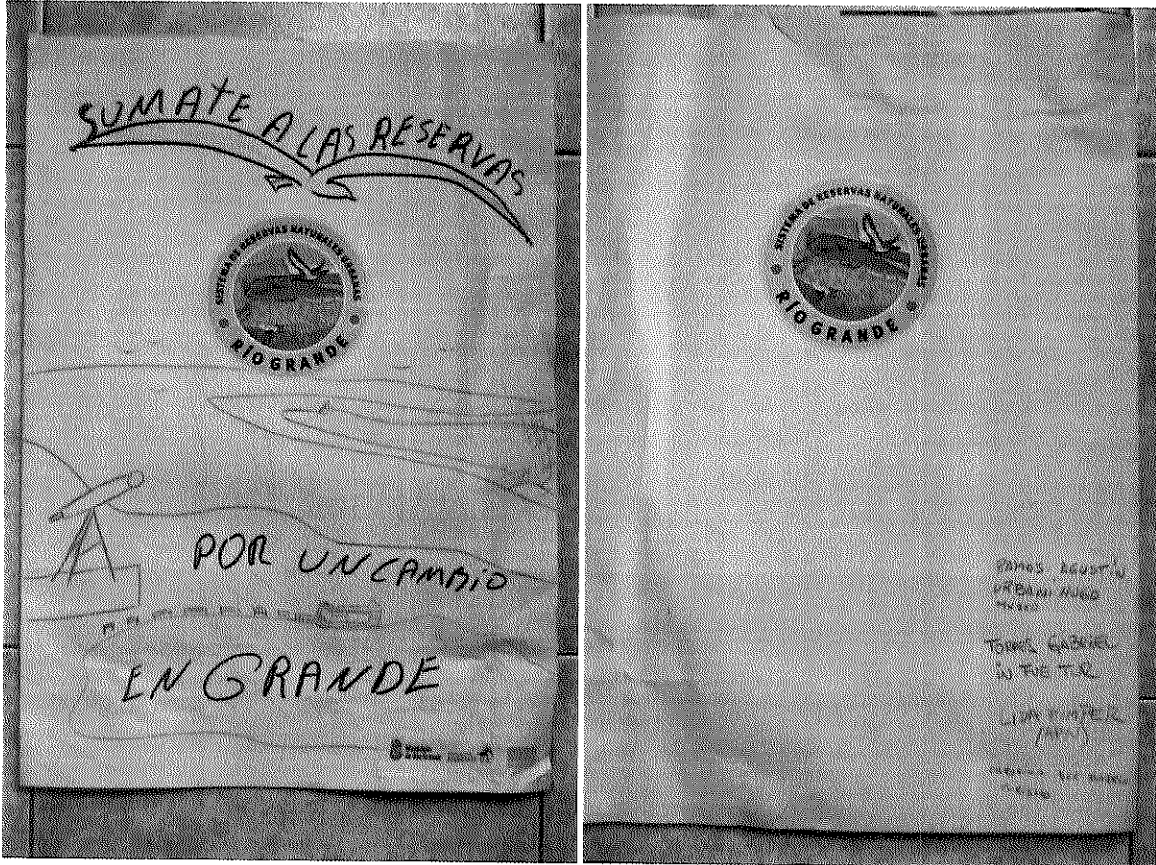 SUMATE A LAS RESERVAS
SISTEMA DE RESERVAS NATURALES URBANAS
RÍO GRANDE
POR UN CAMBIO
EN GRANDE
SISTEMA DE RESERVAS NATURALES URBANAS
RÍO GRANDE
RAMOS AGUSTÍN
URBANI HUGO
TORRES GABRIEL
LIDA